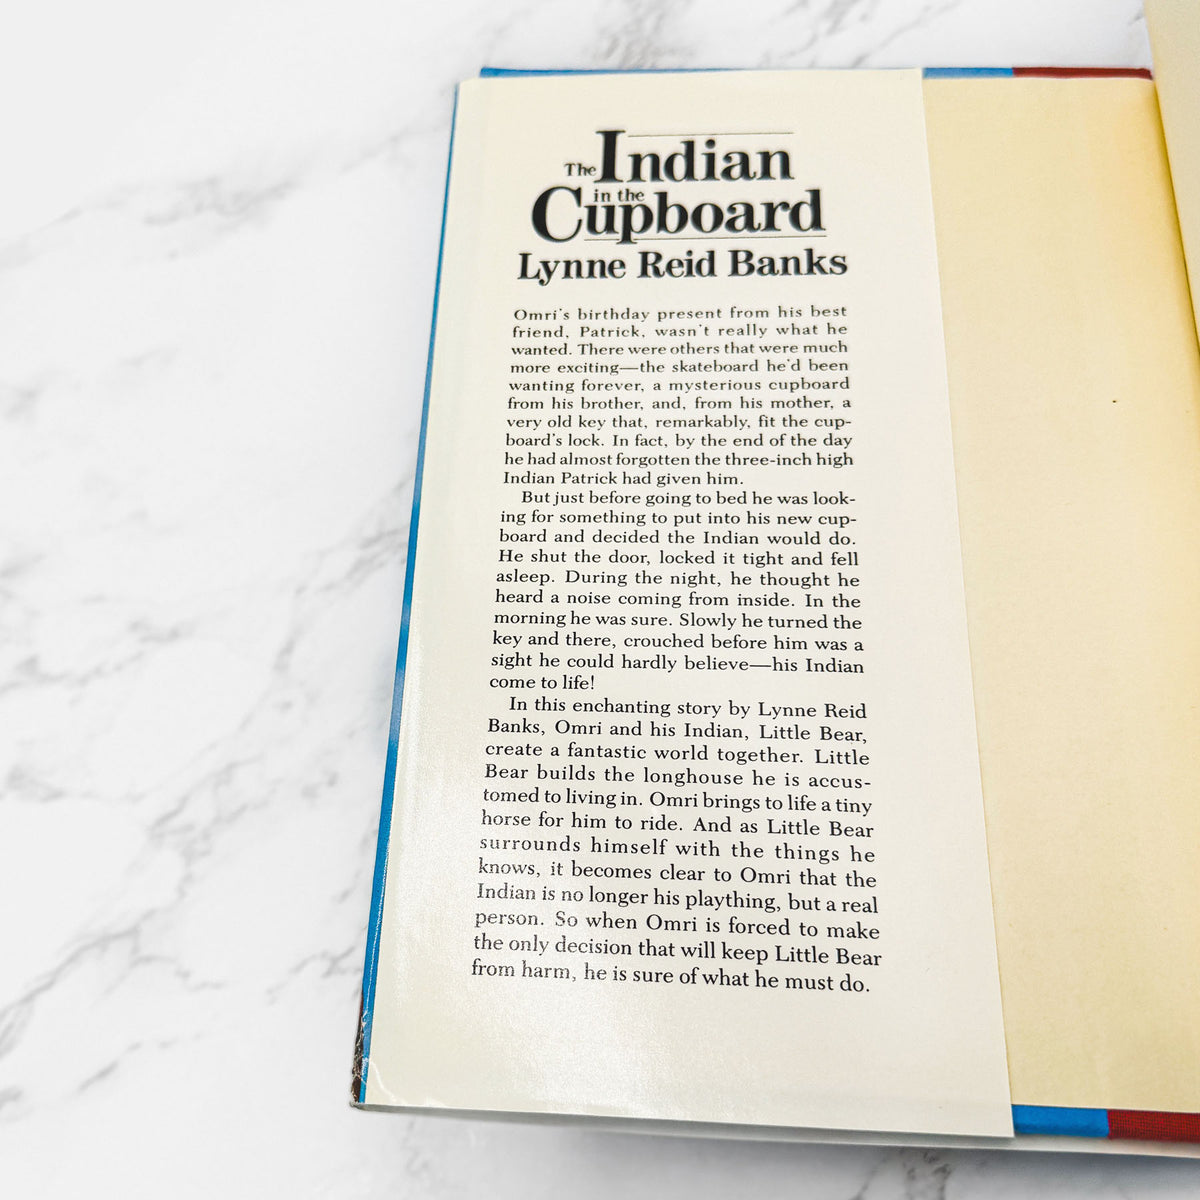 The Indian
in the
Cupboard
Lynne Reid Banks
Omri's birthday present from his best
friend, Patrick, wasn't really what he
wanted. There were others that were much
more exciting—the skateboard he'd been
wanting forever, a mysterious cupboard
from his brother, and, from his mother, a
very old key that, remarkably, fit the cup-
board's lock. In fact, by the end of the day
he had almost forgotten the three-inch high
Indian Patrick had given him.
But just before going to bed he was look-
ing for something to put into his new cup-
board and decided the Indian would do.
He shut the door, locked it tight and fell
asleep. During the night, he thought he
heard a noise coming from inside. In the
morning he was sure. Slowly he turned the
key and there, crouched before him was a
sight he could hardly believe—his Indian
come to life!
In this enchanting story by Lynne Reid
Banks, Omri and his Indian, Little Bear,
create a fantastic world together. Little
Bear builds the longhouse he is accus-
tomed to living in. Omri brings to life a tiny
horse for him to ride. And as Little Bear
surrounds himself with the things he
knows, it becomes clear to Omri that the
Indian is no longer his plaything, but a real
person. So when Omri is forced to make
the only decision that will keep Little Bear
from harm, he is sure of what he must do.